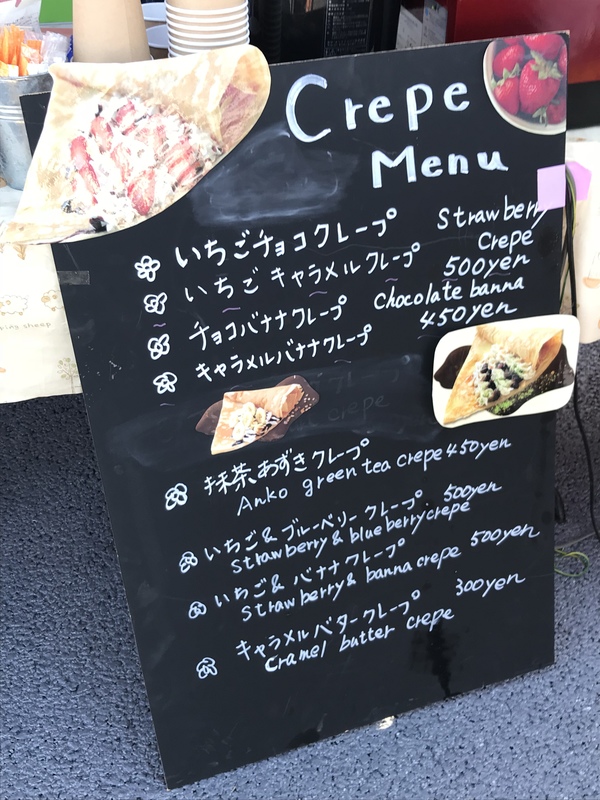 Crepe
Menu
いちごチョコクレープ Strawberry
Crepe
いちごキャラメルクレープ 500yen
チョコバナナクレープ Chocolate banna
450yen
キャラメルバナナクレープ
crepe
抹茶あずきクレープ
Anko green tea crepe 450yen
いちご&ブルーベリークレープ 500yen
Strawberry & blueberry crepe
いちご&バナナクレープ 500yen
Strawberry & banna crepe
キャラメルバタークレープ 300yen
Cramel butter crepe
sheep